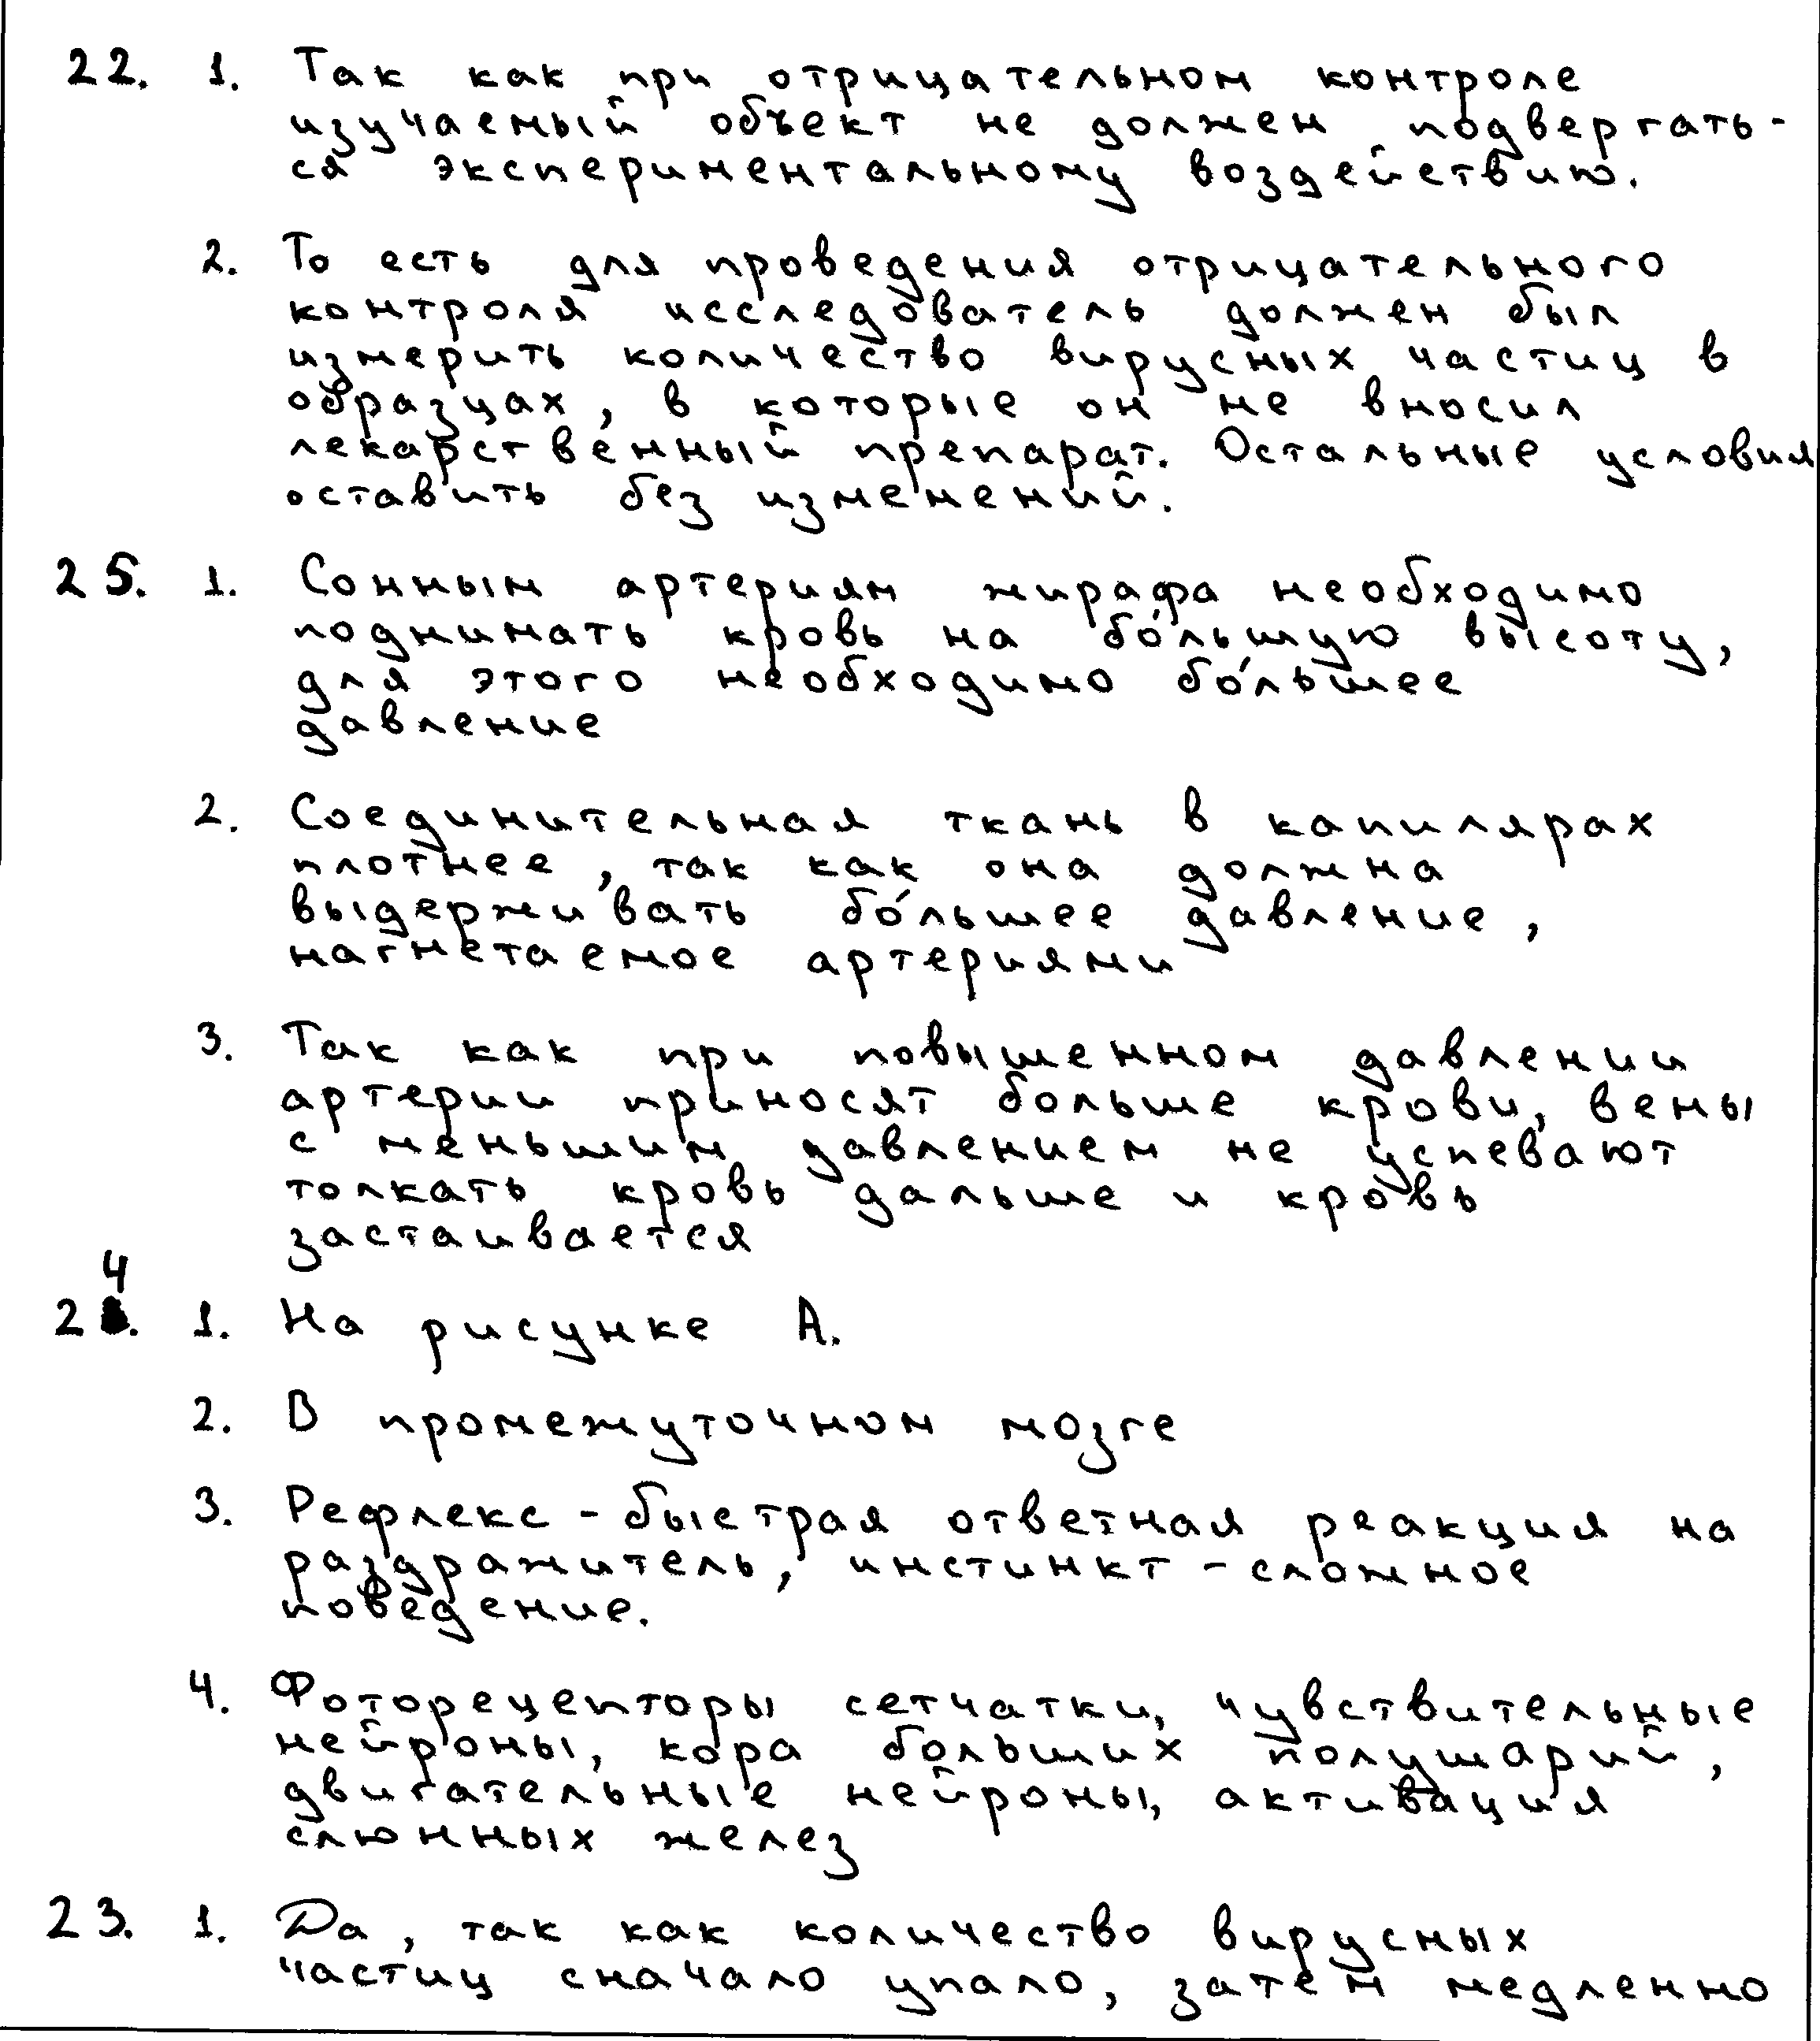 22. 1. Так как при отрицательном контроле
изучаемый объект не должен подвергать-
ся экспериментальному воздействию.
2. То есть для проведения отрицательного
контроля исследователь должен был
измерить количество вирусных частиц в
образцах, в которые он не вносил
лекарственный препарат. Остальные условия
оставить без изменений.
25. 1. Сонным артериям жирафа необходимо
поднимать кровь на бо́льшую высоту,
для этого необходимо бо́льшее
давление
2. Соединительная ткань в капилярах
плотнее, так как она должна
выдерживать бо́льшее давление,
нагнетаемое артериями
3. Так как при повышенном давлении
артерии приносят больше крови, вены
с меньшим давлением не успевают
толкать кровь дальше и кровь
застаивается
24. 1. На рисунке А.
2. В промежуточном мозге
3. Рефлекс - быстрая ответная реакция на
раздражитель, инстинкт - сложное
поведение.
4. Фоторецепторы сетчатки, чувствительные
нейроны, кора больших полушарий,
двигательные нейроны, активация
слюнных желез
23. 1. Да, так как количество вирусных
частиц сначало упало, затем медленно